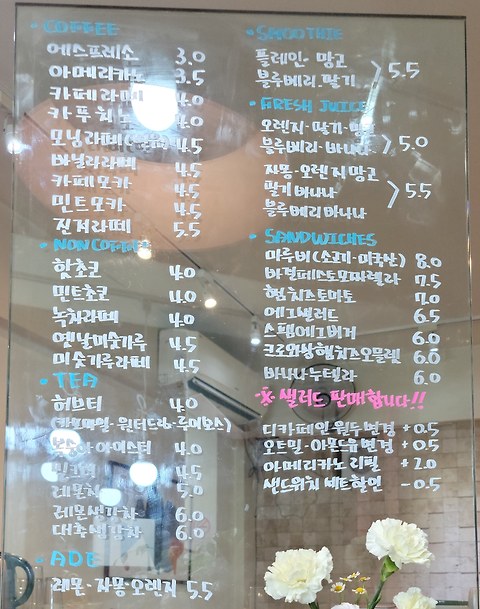 COFFEE
에스프레소 3.0
아메리카노 3.5
카페라떼 4.0
카푸치노 4.0
모닝라떼 4.5
바닐라라떼 4.5
카페모카 4.5
민트모카 4.5
진저라떼 5.5
NON COFFEE
핫초코 4.0
민트초코 4.0
녹차라떼 4.0
옛날미숫가루 4.5
미숫가루라떼 4.5
TEA
허브티 4.0
(캐모마일·윈터드림·루이보스)
아이스티 4.0
4.5
레몬차 5.0
레몬생강차 6.0
대추생강차 6.0
ADE
레몬·자몽·오렌지 5.5
SMOOTHIE
플레인·망고
블루베리·딸기 5.5
FRESH JUICE
오렌지·딸기·
블루베리·바나나 5.0
자몽·오렌지망고
딸기바나나 5.5
블루베리바나나
SANDWICHES
마루비(소고기·미국산) 8.0
바질페스토모짜렐라 7.5
햄치즈토마토 7.0
에그샐러드 6.5
스팸에그버거 6.0
크로와상햄치즈오믈렛 6.0
바나나누텔라 6.0
※ 샐러드 판매합니다!!
디카페인 원두변경 +0.5
오트밀·아몬드유변경 +0.5
아메리카노 리필 +2.0
샌드위치 세트할인 -0.5